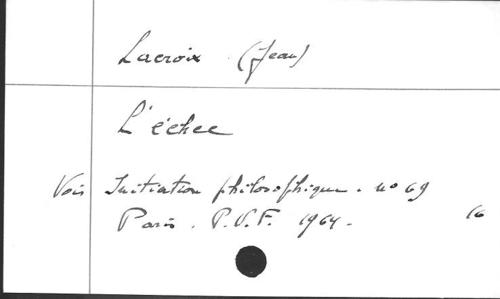 Lacroix (Jean)
L'échec
Voir Initiation philosophique. no 69
Paris. P.U.F. 1964. 16